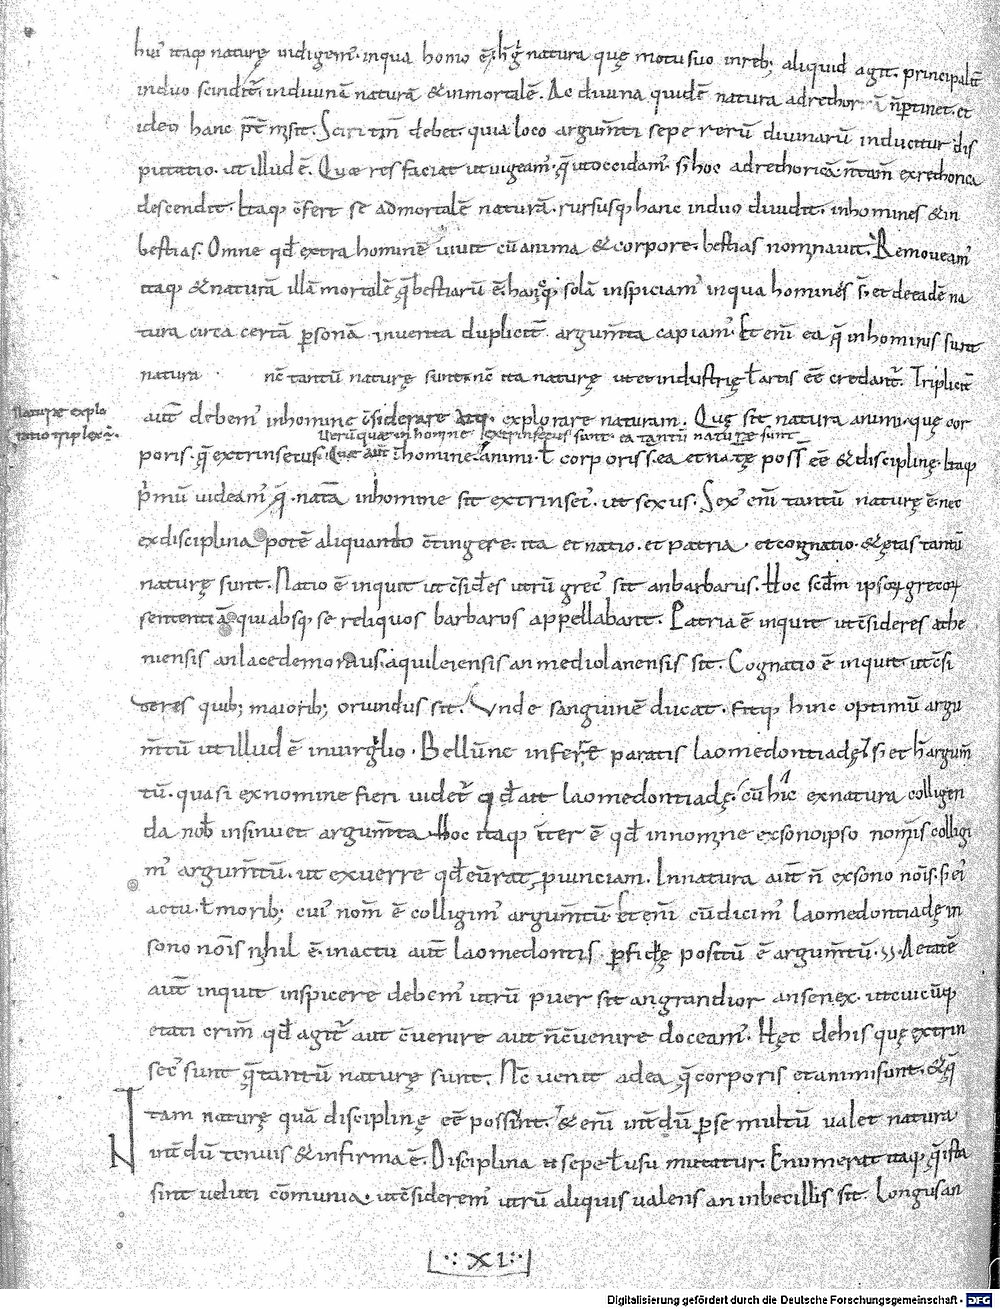 hui' itaq naturę indigem'. inqua homo ē. hęc natura quę motu suo inreb; aliquid agit. principalit
induo scindit'. indiuinā naturā & inmortalē. Ac diuina quidē natura adrethoricā n̄ ptinet. et
ideo hanc pretermisit. Sciri tam̄ debet quia loco argum̄ti sepe rerū diuinarū inducitur dis
putatio. ut illud ē. Quae res faciat ut uigeam'. quę ut occidam'. s; hoc adrethoricā n̄ tam̄ exrethorica
descendit. Itaq c̄fert se admortalē naturā. rursusq hanc induo diuidit. inhomines & in
bestias. Omne qd̄ extra hominē uiuit cū anima & corpore. bestias nominauit. Remoueam'
itaq & naturā illā mortalē quę bestiarū ē. hancq solā inspiciam' inqua homines s̄t et deeadē na
tura circa certā psonā inuenta duplicit argum̄ta capiam'. Et eni ea quę inhominis sunt
natura nc̄ tantū naturę sunt. nc̄ ita naturę ut et industrię ł artis eē credant'. Triplicit
Naturae explo
ratio triplex ē.
aut̄ debem' inhomine c̄siderare atq explorare naturam. Quę sit natura animi. que cor
Uerū quae in homine extrinsecus sunt. ea tantū naturae sunt
poris. quę extrinsecus. Quae aut̄ ī homine. animi. ł corporis s̄. ea et naturę poss̄ eē & disciplinę. Itaq
p'mū uideam' quę. natā inhomine sit extrinsec'. ut sexus. Sex' eni tantū naturę ē. nec
exdisciplina potē aliquando c̄tingere. ita et natio. et patria. et cognatio. & ętas tantū
naturę sunt. Natio ē inquit ut c̄sid̄es utrū grec' sit anbarbarus. Hoc scd̄m ipsoꝝ grecoꝝ
sententiā qui absq se reliquos barbaros appellabant. Patria ē inquit ut c̄sideres athe
niensis an lacedemonius. aquileiensis an mediolanensis sit. Cognatio ē inquit ut c̄si
deres quib; maiorib; oriundus sit. Unde sanguinē ducat. fitq hinc optimū argu
m̄tū ut illud ē inuirgilio. Bellūne inferre paratis laomedontiadę. s; et hoc argum̄
tū. quasi ex nomine fieri uidet' qd̄ ait laomedontiadę. cū hic exnatura colligen
da nob̄ insinuet argum̄ta. Hoc itaq inter ē qd̄ innomine exsono ipso nominis colligi
m' argum̄tū. ut exuerre qd̄ euerrat puinciam. Innatura aut̄ n̄ exsono nōis. s; ei'
actu. ł morib; cui' nom̄ ē colligim' argum̄tū. Et eni cū dicim' laomedontiadę in
sono nōis nihil ē. inactu aut̄ laomedontis pfidię positū ē argum̄tū. Aetatē
aut̄ inquit inspicere debem' utrū puer sit an grandior an senex. ut cuicūq
etati crim̄ qd̄ agit' aut c̄uenire aut n̄ c̄uenire doceam'. Hęc dehis quę extrin
sec' sunt quę tantū naturę sunt. Nc̄ uenit adea quę corporis et animi sunt. & quę
tam naturę quā disciplinę eē possint. & eni int̄dū pse multū ualet natura
int̄dū tenuis & infirma ē. Disciplina u sepe ł usu mutatur. Enumerat itaq quę ista
sint ueluti cōmunia. ut c̄siderem' utrū aliquis ualens an inbecillis sit. Longus an
·: XI :·
Digitalisierung gefördert durch die Deutsche Forschungsgemeinschaft - DFG